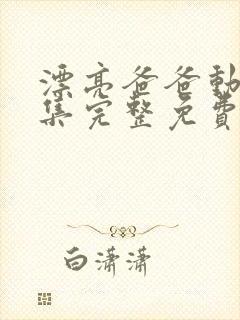 漂亮爸爸動
集完整免費
白瀟瀟